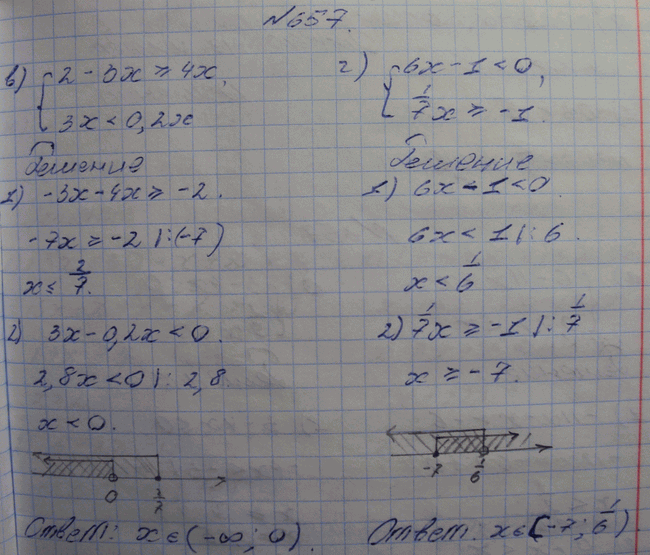 №657.
в) { 2 - 3x ≥ 4x,
3x < 0,2x
Решение
1) -3x - 4x ≥ -2.
-7x ≥ -2 |:(-7)
x ≤ 2/7.
2) 3x - 0,2x < 0.
2,8x < 0 |: 2,8
x < 0.
0 2/7
Ответ: x ∈ (-∞; 0).
г) { 6x - 1 < 0,
1/7 x ≥ -1.
Решение
1) 6x - 1 < 0.
6x < 1 |: 6.
x < 1/6
2) 1/7 x ≥ -1 |: 1/7
x ≥ -7.
-7 1/6
Ответ: x ∈ [-7; 1/6)